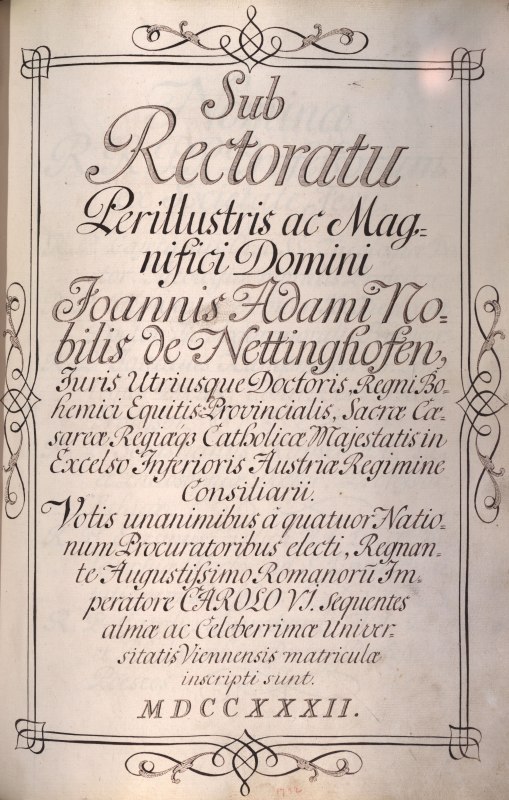 Sub
Rectoratu
Perillustris ac Mag=
nifici Domini
Joannis Adami No=
bilis de Nettinghofen,
Juris Utriusque Doctoris, Regni Bo=
hemici Equitis Provincialis, Sacræ Cæ=
sareæ Regiæqȝ Catholicæ Majestatis in
Excelso Inferioris Austriæ Regimine
Consiliarii.
Votis unanimibus â quatuor Natio=
num Procuratoribus electi, Regnan=
te Augustißimo Romanorū Im=
peratore CAROLO VI. sequentes
almæ ac Celeberrimæ Univer=
sitatis Viennensis matriculæ
inscripti sunt.
MDCCXXXII.
1732